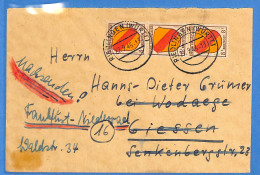 PFULLINGEN (WÜRTT)
Herrn
Hanns-Dieter Grüner
bei Wodaege
Giessen
Senkenbergstr. 23
Nachsenden!
Frankfurt-Niederrad
Waldstr. 34
16